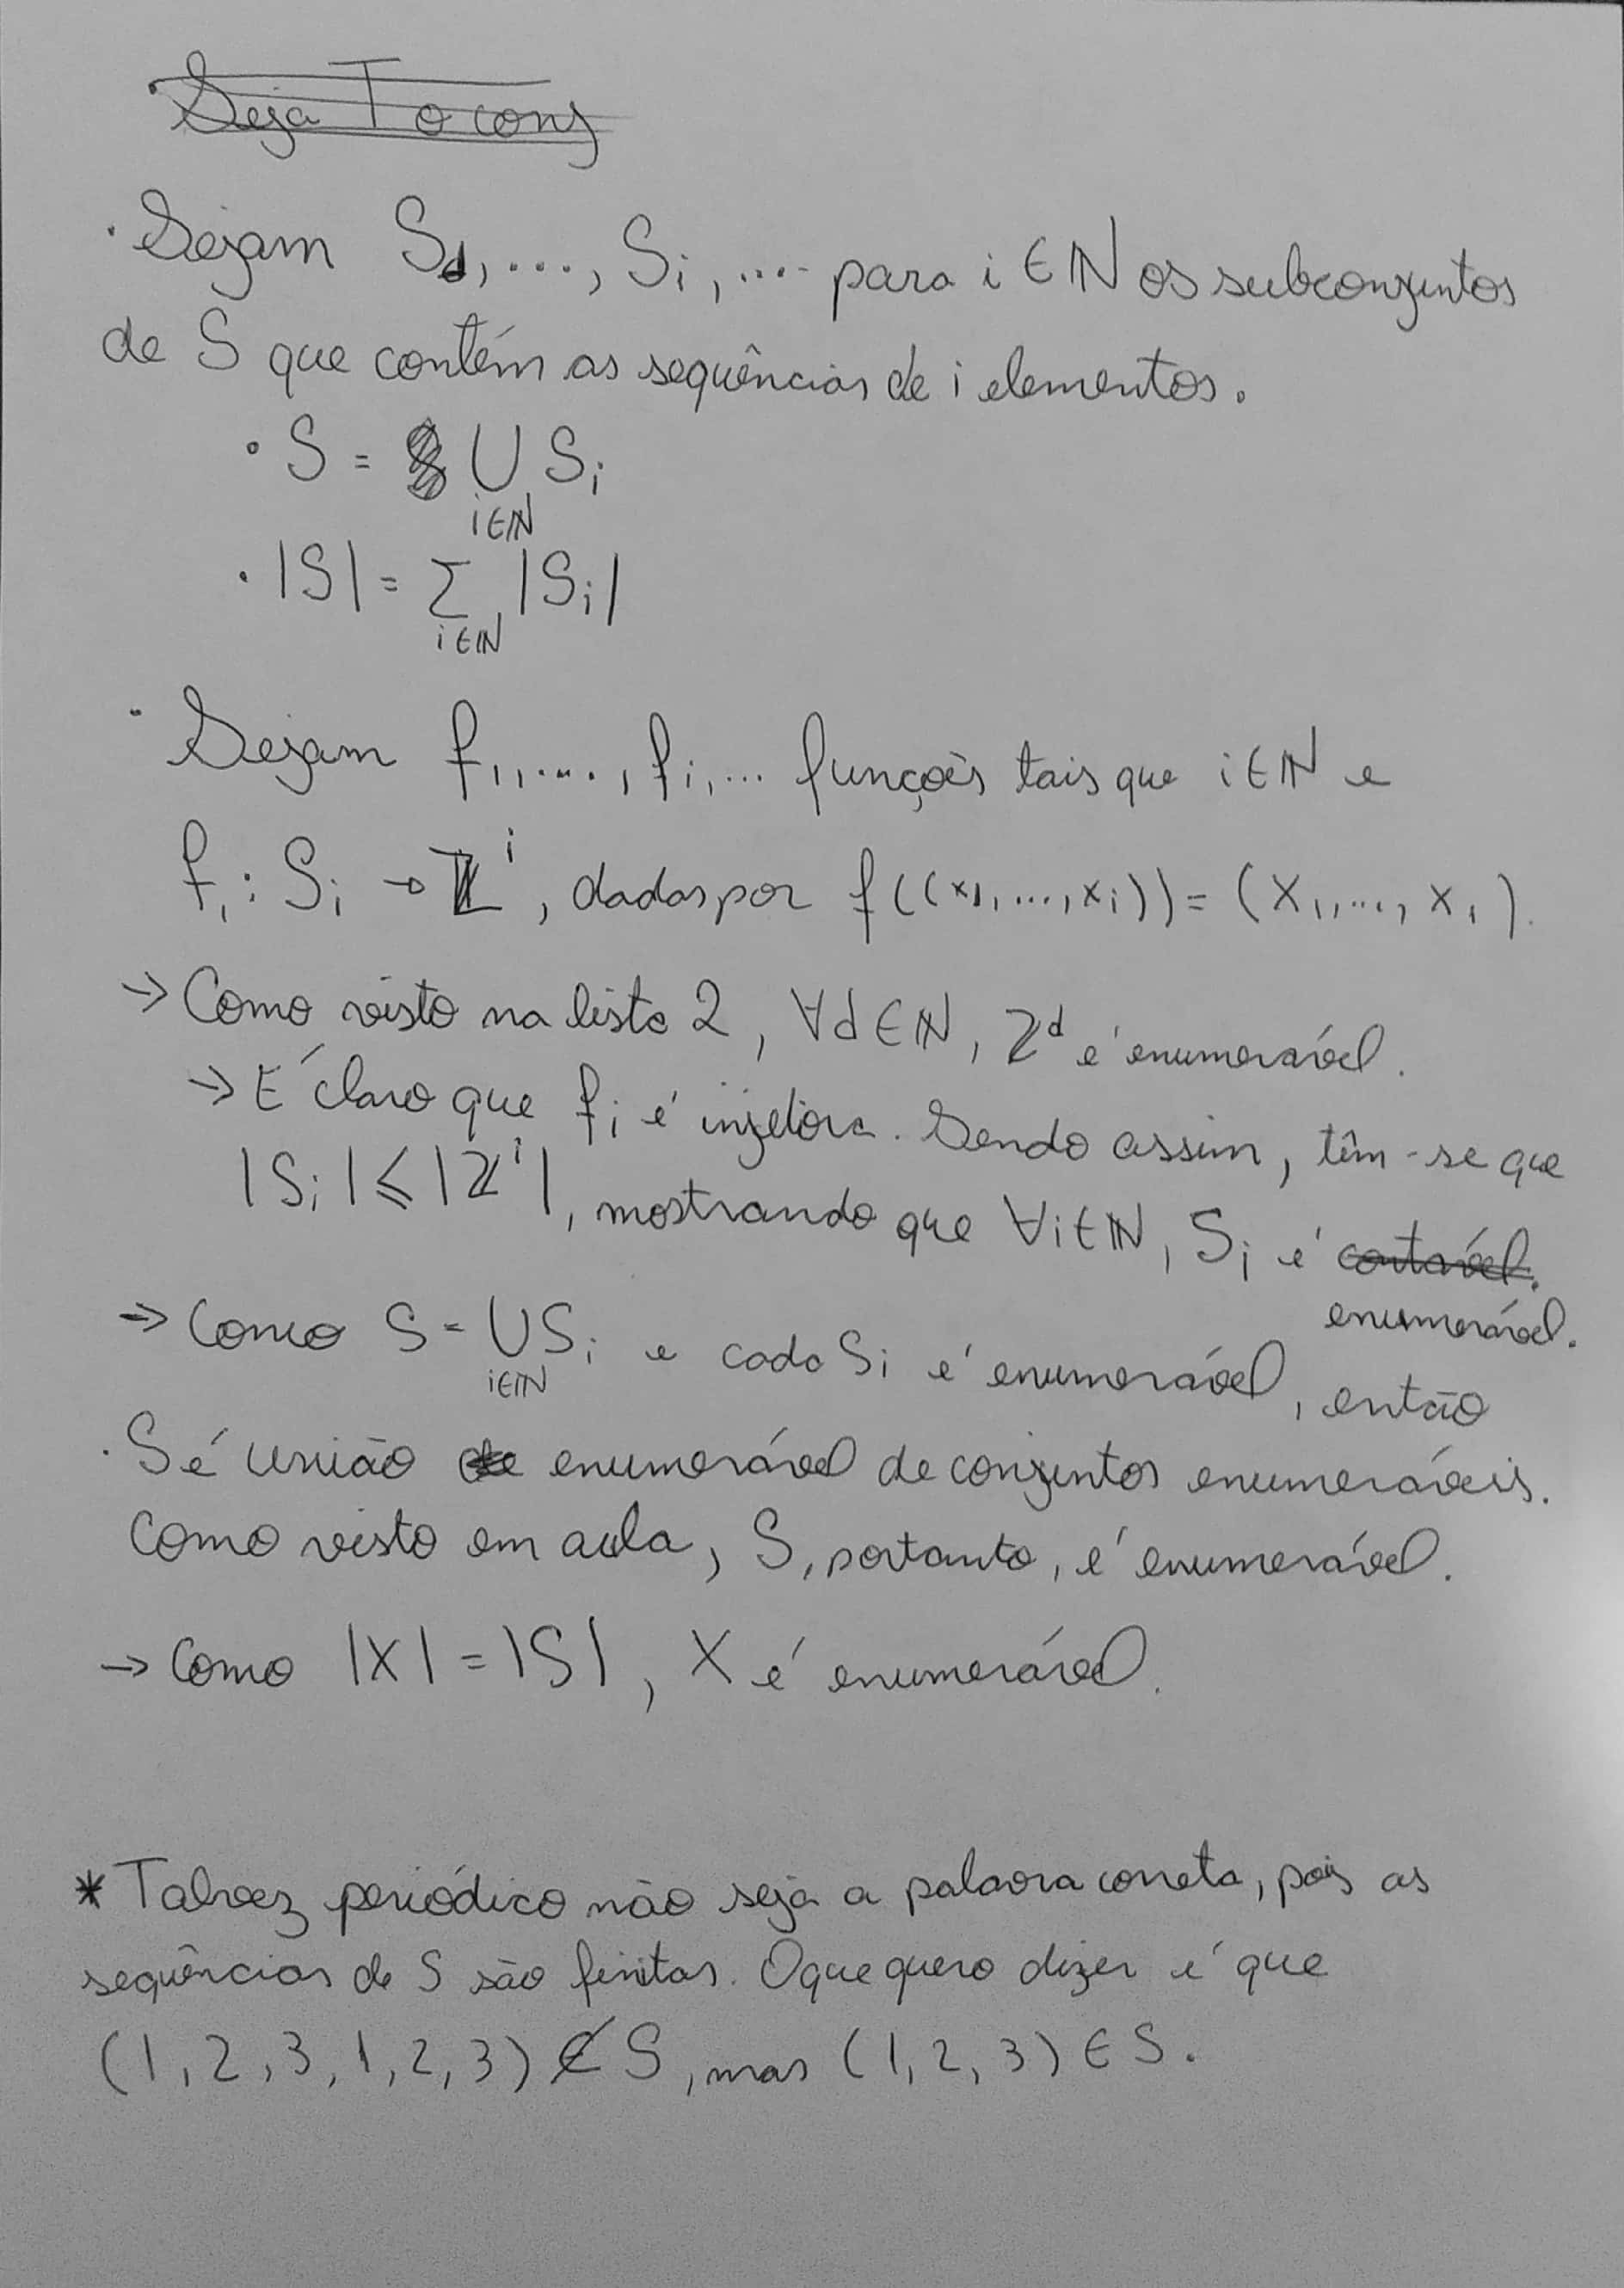 Seja T o conj
· Sejam S₁, ..., Sᵢ, ... para i ∈ ℕ os subconjuntos
de S que contém as sequências de i elementos.
· S = ⋃ Sᵢ
i∈ℕ
· |S| = Σ |Sᵢ|
i∈ℕ
· Sejam f₁, ..., fᵢ, ... funções tais que i ∈ ℕ e
fᵢ: Sᵢ → ℤⁱ, dadas por f((x₁, ..., xᵢ)) = (x₁, ..., xᵢ).
→ Como visto na lista 2, ∀d ∈ ℕ, ℤᵈ é enumerável.
→ É claro que fᵢ é injetora. Sendo assim, têm-se que
|Sᵢ| ≤ |ℤⁱ|, mostrando que ∀i ∈ ℕ, Sᵢ é contável.
enumerável.
→ Como S = ⋃ Sᵢ e cada Sᵢ é enumerável, então
i∈ℕ
· S é união enumerável de conjuntos enumeráveis.
Como visto em aula, S, portanto, é enumerável.
→ Como |X| = |S|, X é enumerável.
* Talvez periódico não seja a palavra correta, pois as
sequências de S são finitas. O que quero dizer é que
(1, 2, 3, 1, 2, 3) ∉ S, mas (1, 2, 3) ∈ S.